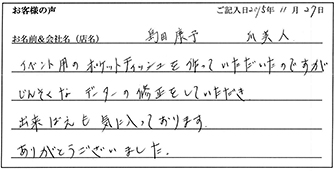 お客様の声 ご記入日2015年11月27日
お名前&会社名(店名) 島田康子 爪美人
イベント用のポケットティッシュを作っていただいたのですが
じんそくなデーターの修正をしていただき
出来ばえも気に入っております。
ありがとうございました。